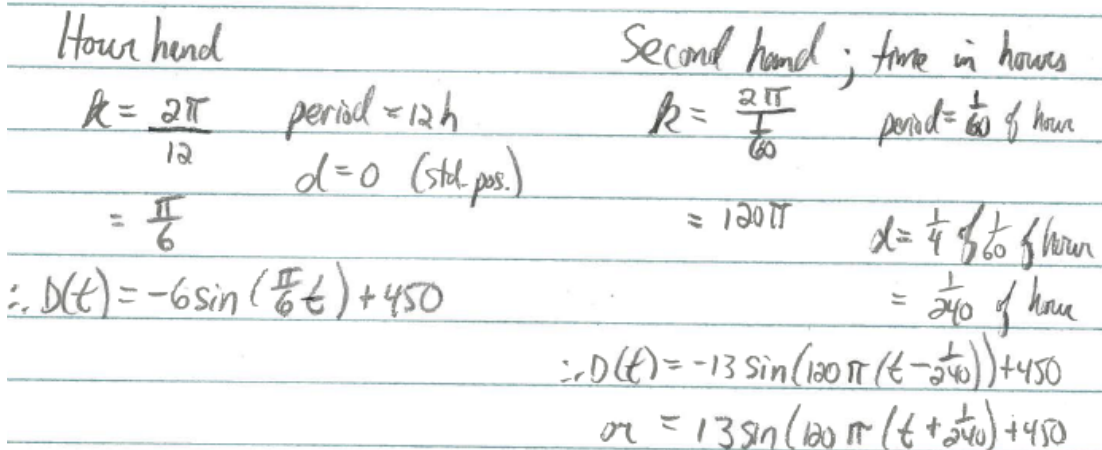 Hour hand
k = 2π/12 period = 12 h
d = 0 (std. pos.)
= π/6
∴ D(t) = -6 sin (π/6 t) + 450
Second hand ; time in hours
k = 2π/(1/60) period = 1/60 of hour
= 120π d = 1/4 of 1/60 of hour
= 1/240 of hour
∴ D(t) = -13 sin(120π(t - 1/240)) + 450
or = 13 sin(120π(t + 1/240) + 450